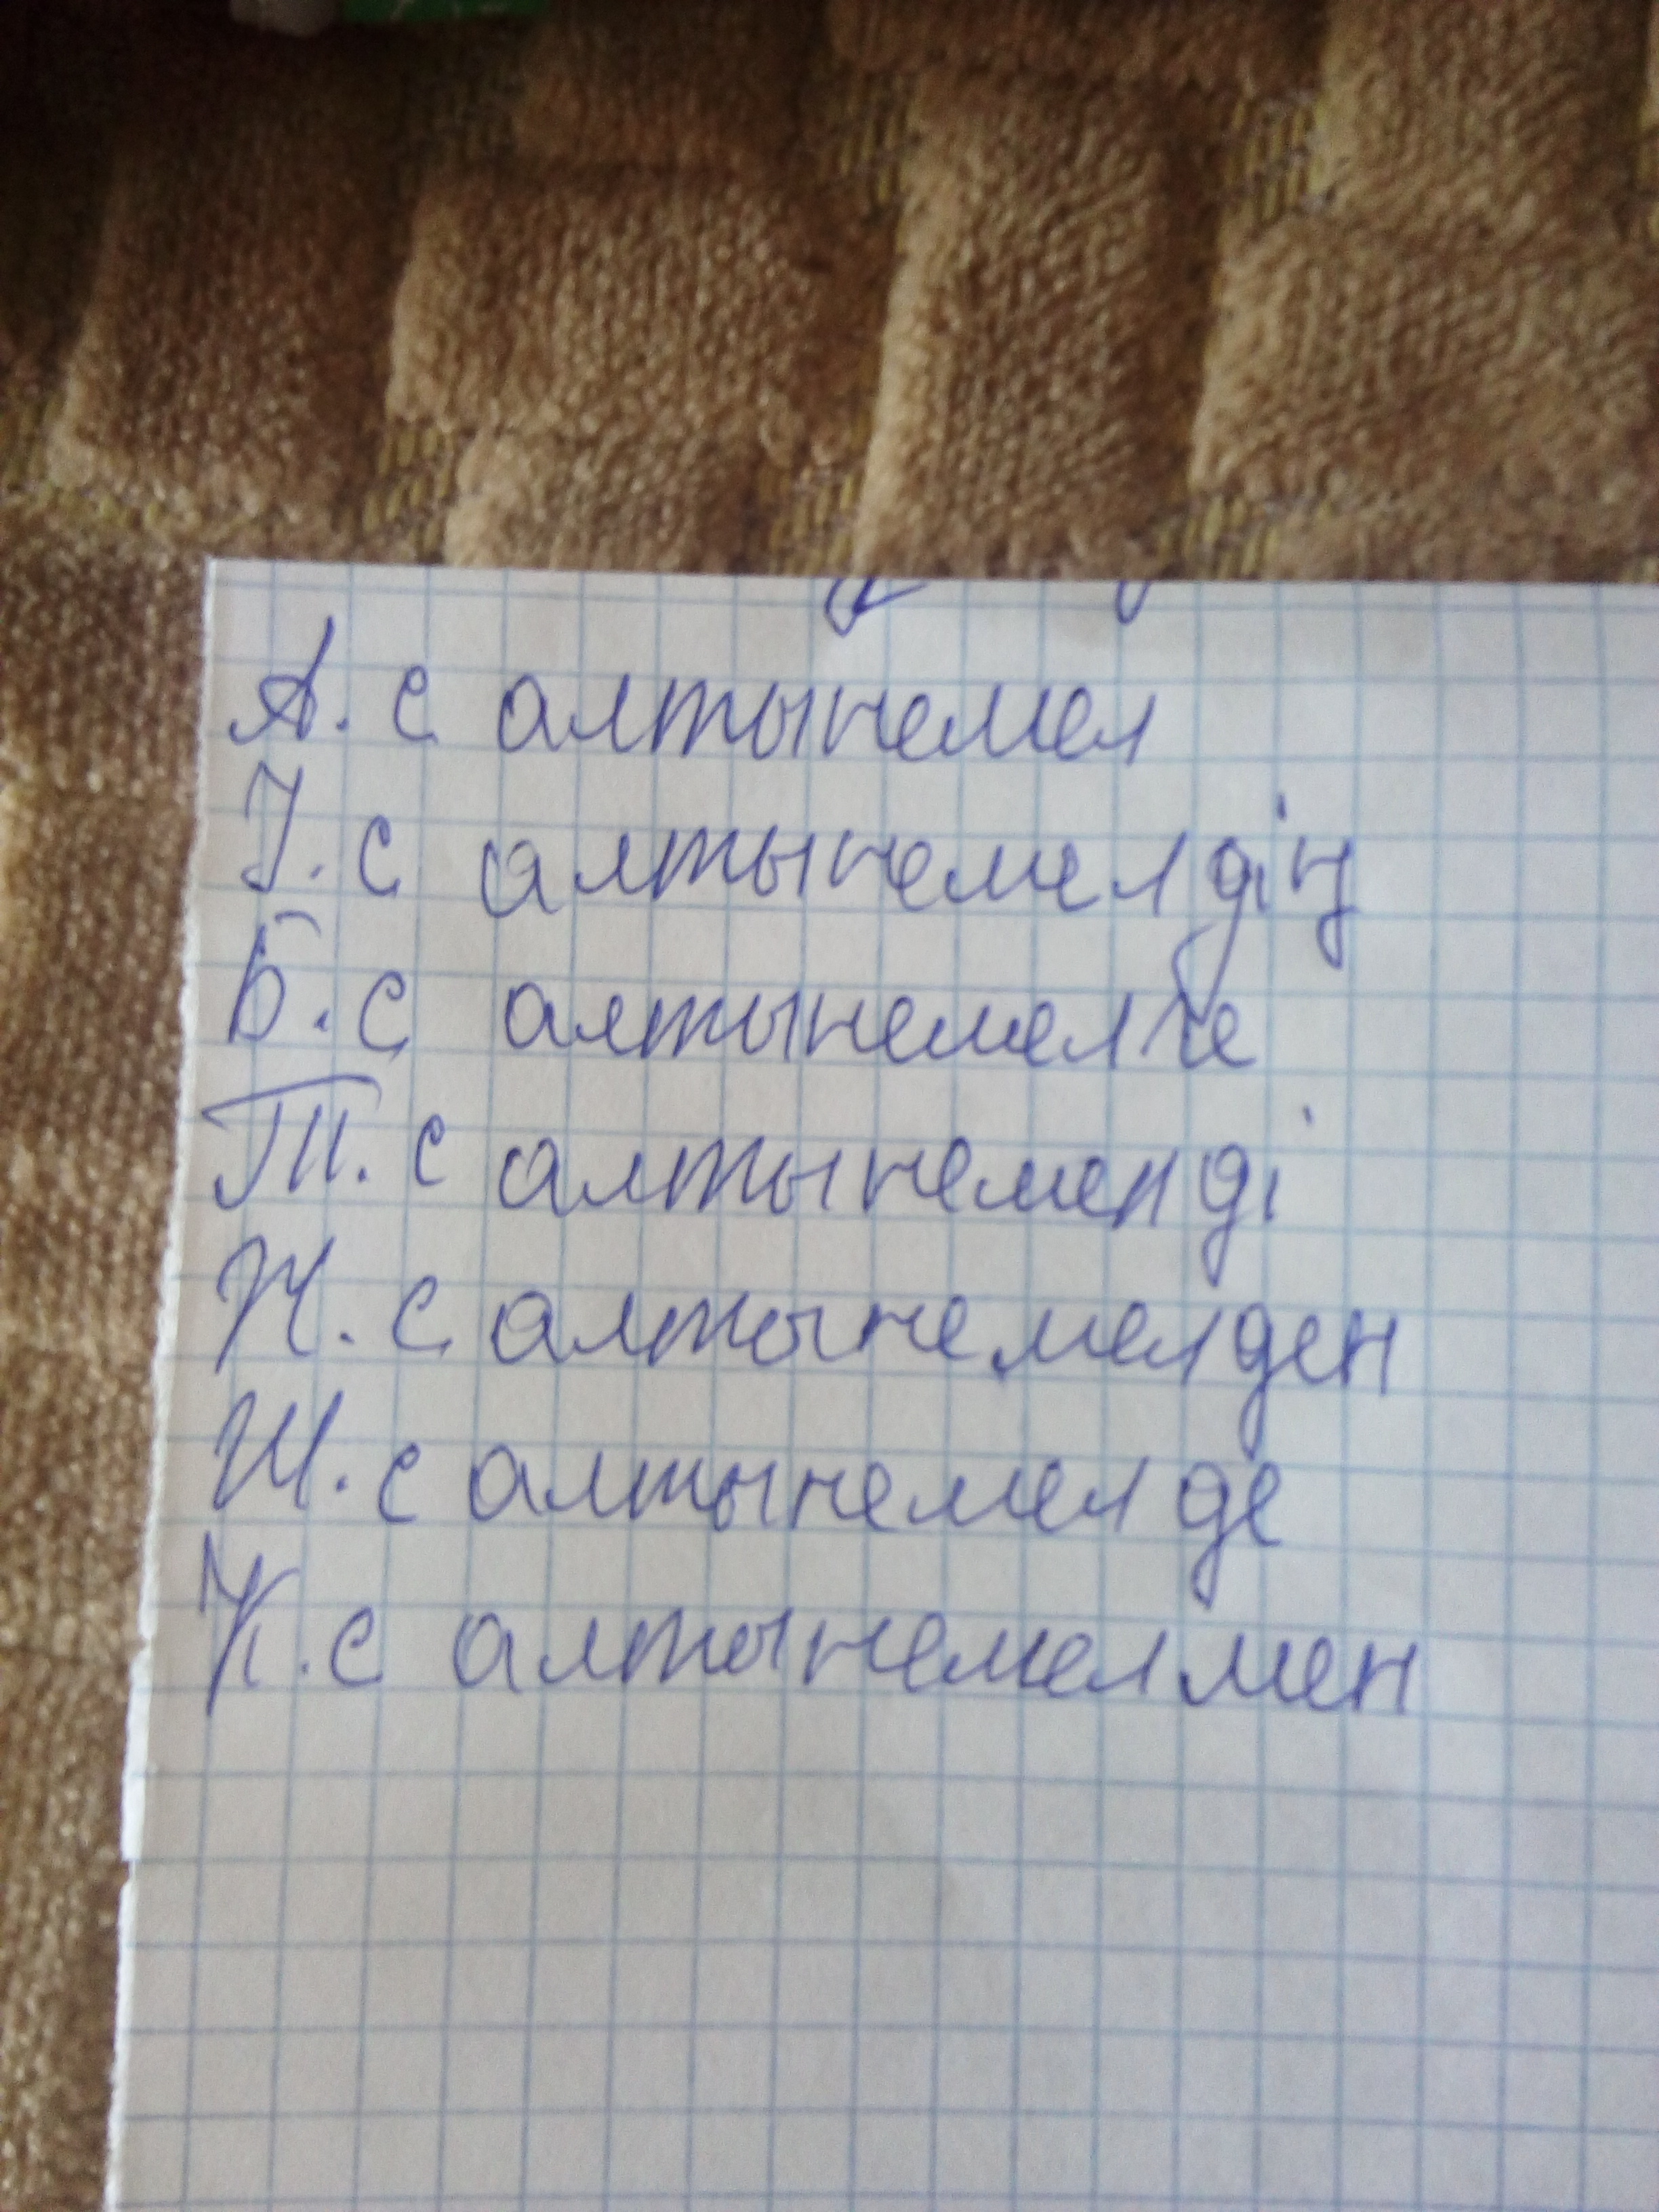 А. с алтынемел
І. с алтынемелдің
Б. с алтынемелге
Т. с алтынеменді
Ж. с алтынемелден
Ш. с алтынемелде
К. с алтынемелмен